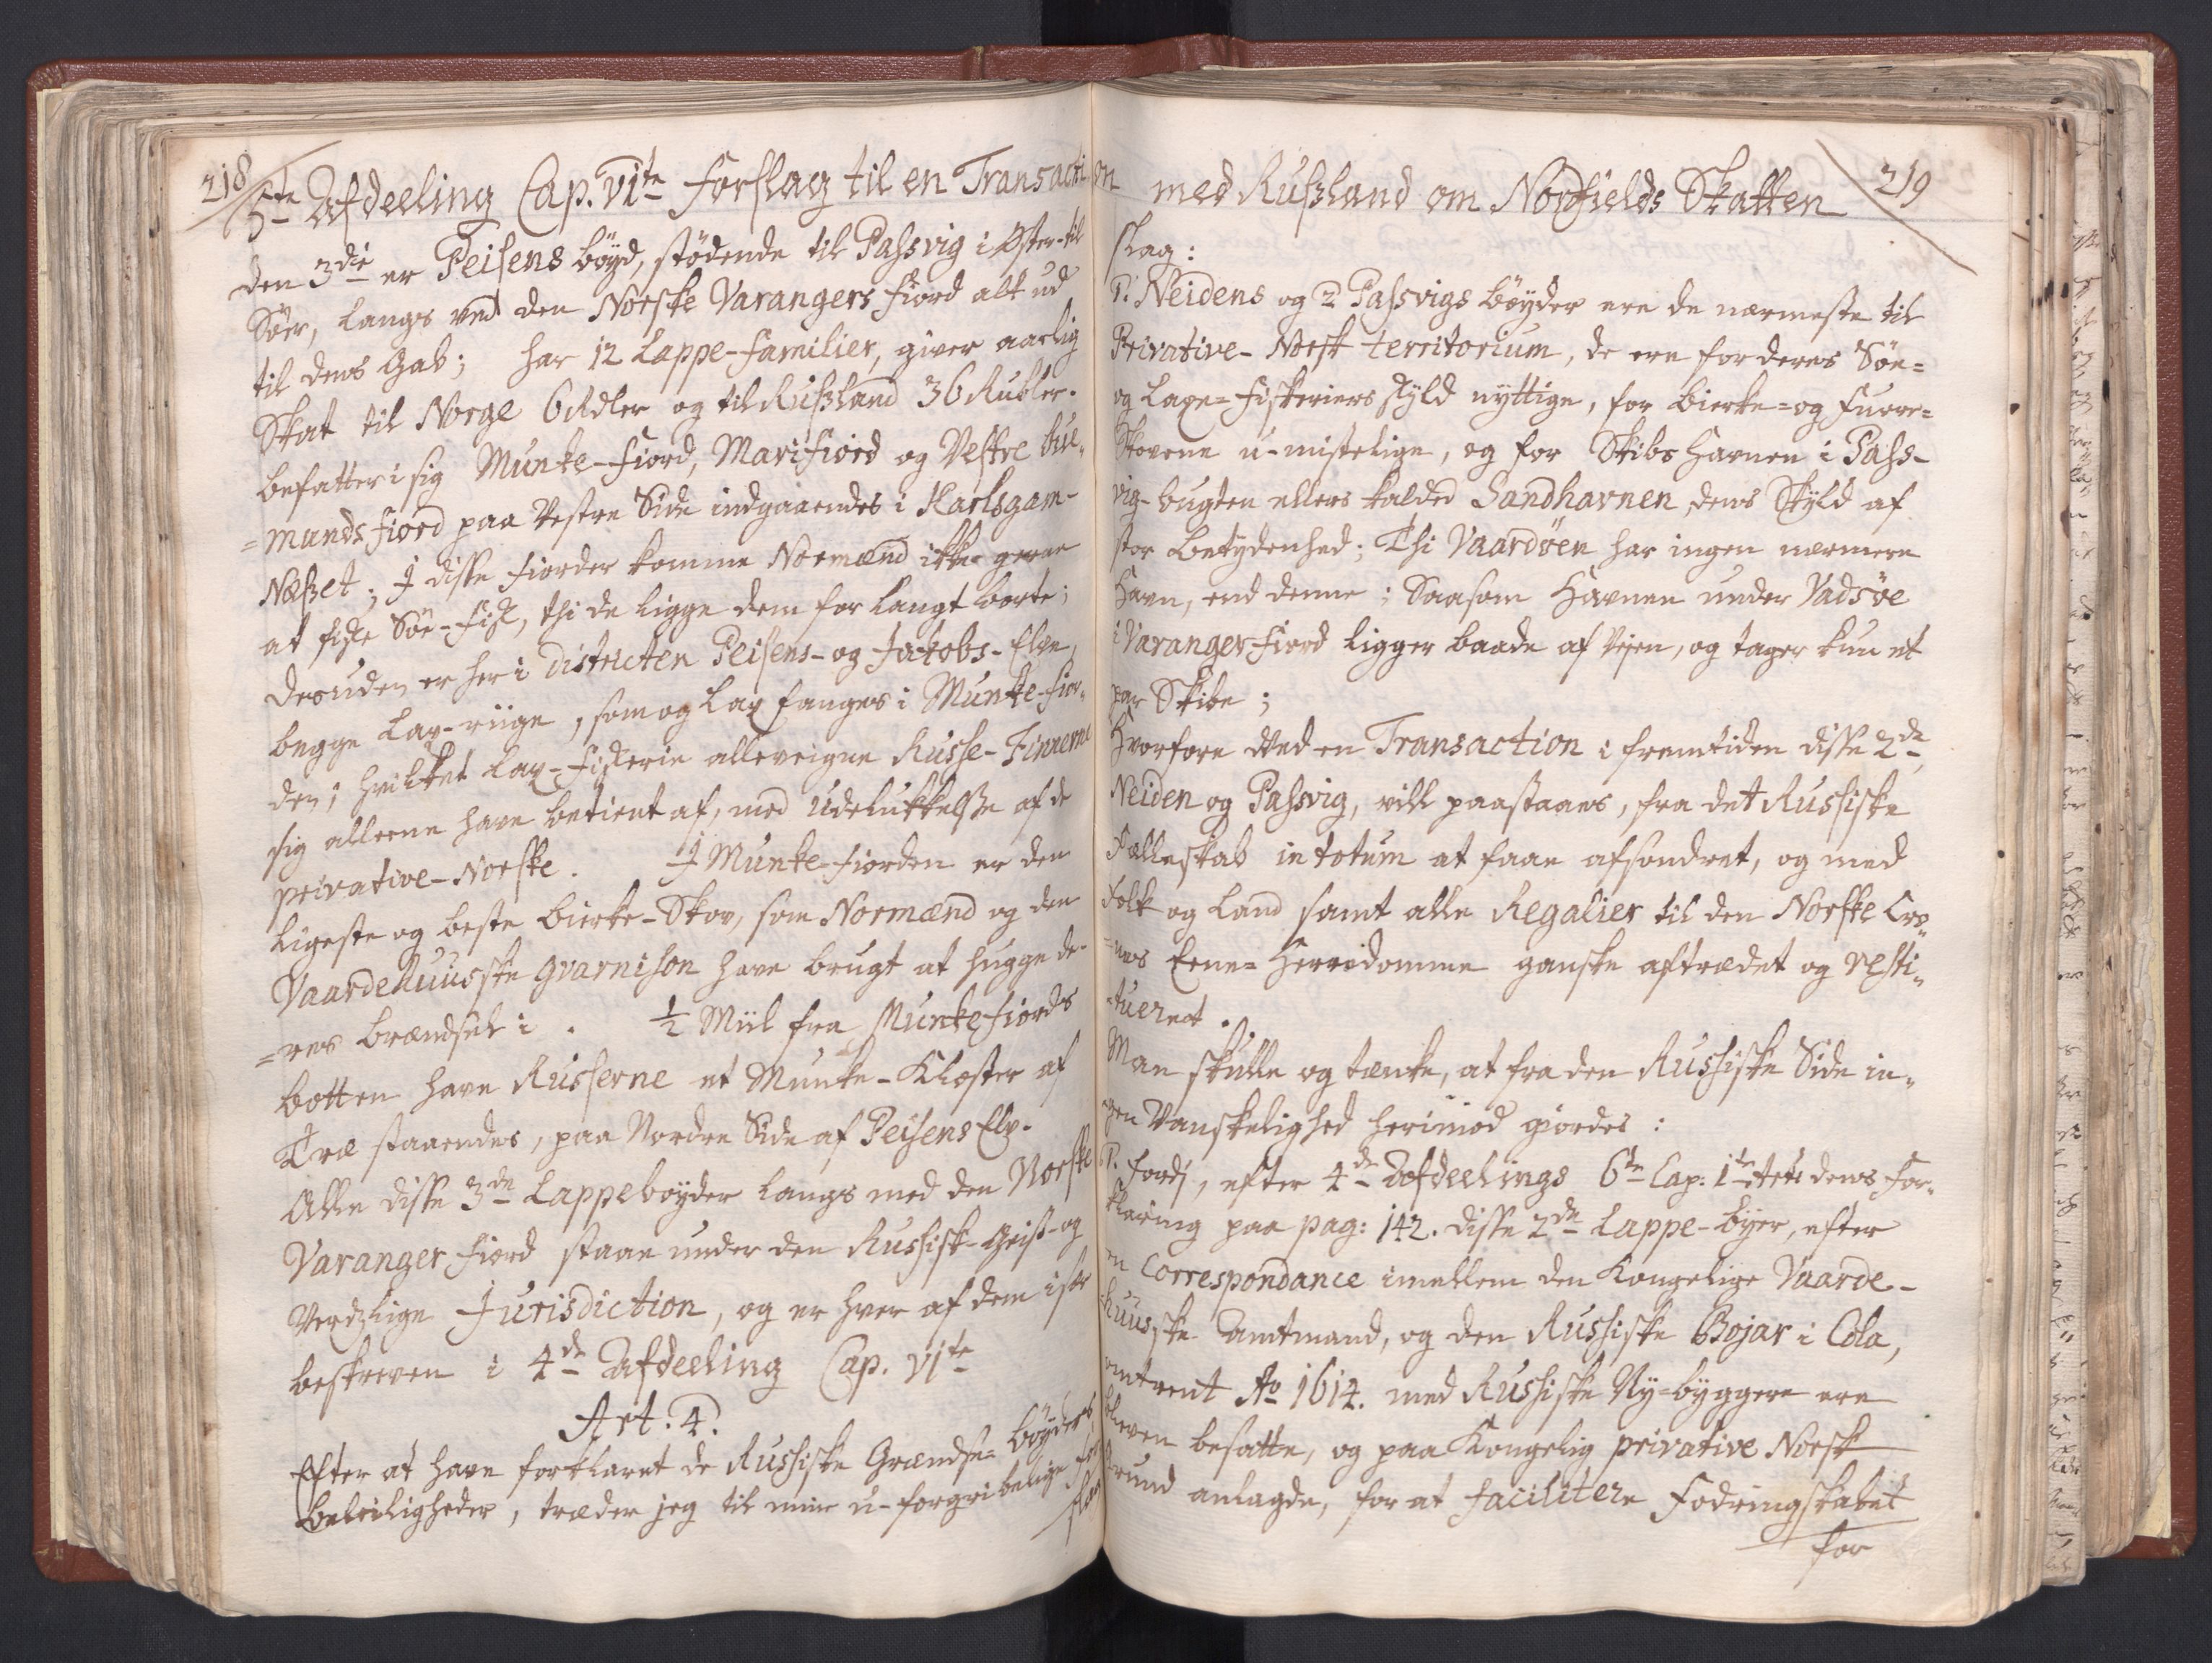 218
5te Afdeeling Cap. VIte Forslag til en Transacti
den 3die er Peisens böyd, stödende til Passvig i Øster-til
Söer, langs ved den Norske Varangers fiord alt ud
til dens Gab; har 12 Lappe-familier, giver aarlig
Skat til Norge 6 Rdler og til Rußland 36 Rubler.
befatter i sig Munke-fiord, Marifiord og Vestre bue-
=mands fiord paa Vestre Side indgaaendes i Karlsgam-
Næßet; I disse fiorder komme Normænd ikke gerne
at fiske Söe-fisk, thi de ligge dem for langt borte;
desuden er her i districten Peisens- og Jakobs-Elve,
begge Lax-riige, som og Lax fanges i Munke-fior-
den; hvilket Lax-fiskerie alleveigne Russe-Finnerne
sig alleene have betient af, med Udelukkelße af de
privative-Norske. I Munke-fiorden er den
ligeste og beste birke-Skov, som Normænd og den
Vaardehuusske gvarnison have brugt at hugge de-
=res brændsel i. ½ Miil fra Munkefiords
botten have Russerne et Munke-Kloster af
Træ staaendes, paa Nordre Side af Peisens Elv.
Alle disse 3de Lappebøyder langs med den Norske
Varanger fiord staae under den Russisk-Geist- og
Verdslige Jurisdiction, og er hver af dem især
beskreven i 4de Afdeeling Cap. VIte
Art. 4.
Efter at have forklaret de Russiske Grændse-böyders
beleiligheder, træder jeg til mine u-forgribelige For-
slag
219
on med Rußland om Nordfields Skatten
slag:
1. Neidens og 2 Passvigs böyder ere de nærmeste til
Privative-Norsk territorium, de ere for deres Söe=
og Laxe=fiskeriers skyld nyttige, for birke=og furre=
Skovene u-mistelige, og for Skibs Havnen i Pass-
vig-bugten ellers kalded Sandhavnen, dens Skyld af
stor betydenhed; Thi Vaardöen har ingen nærmere
Havn, end denne; Saasom Havnen under Vadsöe
i Varanger-fiord ligger baade af Vejen, og tager kun et
par Skibe;
Hvorfore ved en Transaction i fremtiden disse 2de,
Neiden og Passvig, vill paastaaes, fra det Russiske
Fælleskab in totum at faae afsondret, og med
Folk og Land samt alle Regalier til den Norske Cro-
=nes Eene=Herredomme ganske aftrædet og resti-
=tueret.
Man skulle og tænke, at fra den Russiske Side in-
=gen Vanskelighed herimod giordes:
1. fordj, efter 4de Afdeelings 6te Cap. 1te Acts dens For-
klaring paa pag: 142. disse 2de Lappe-byer, efter
en Correspondance imellem den Kongelige Vaarde-
huusske Amtmand, og den Russiske Bojar i Cola,
omtrent Ao 1614. med Russiske Ny-byggere ere
bleven besatte, og paa Kongelig privative Norsk
Grund anlagde, for at facilitere Fodringskabet
for